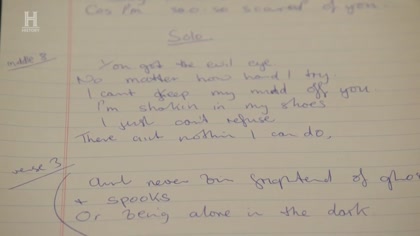 H
HISTORY
Cos I'm so so scared of you.
Solo.
middle 8
You got the evil eye
No matter how hard I try
I cant keep my mind off you.
I'm shakin in my shoes
I just cant refuse
There aint nothin I can do.
verse 3
Aint never bin frightend of ghos
+ spooks
Or being alone in the dark